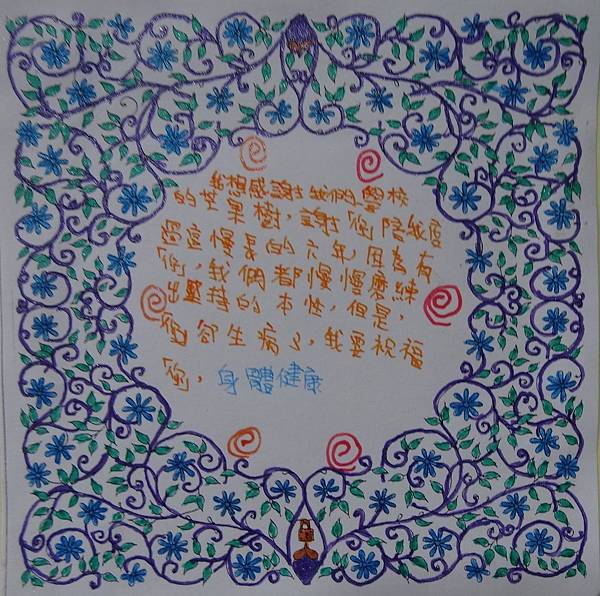 我想感謝我們學校
的芒果樹，謝「您」陪我度
過這慢長的六年，因為有
「您」，我們都慢慢磨練
出堅持的本性，但是，
「您」卻生病了，我要祝福
「您」，身體健康